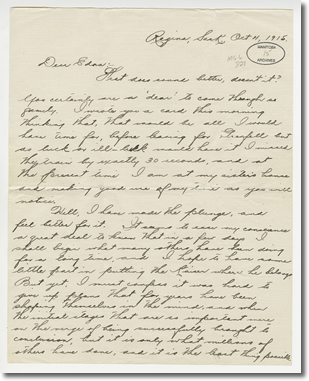 Regina, Sask, Oct 11, 1915,
MANITOBA
ARCHIVES
Dear Edna:
That does sound better, doesn't it?
You certainly are a "dear" to come through so
promptly. I wrote you a card this morning
thinking that, that would be all I would
have time for, before leaving for Grenfell but
as luck or ill luck would have it I missed
the train by exactly 30 seconds, and at
the present time I am at my sister's house
and making good use of my time as you will
notice.
Well, I have made the plunge, and
feel better for it. It to ease my conscience
a great deal to know that in a few days I
shall begin what many others have been doing
for a long time, and I hope to have some
little part in putting the Kaiser where he belongs
But yet, I must confess it was hard to
give up plans that for years have been
shaping themselves in my mind, and when
the initial stages that are so important were
on the verge of being successfully brought to
conclusion, but it is only what millions of
others have done, and it is the least thing possible